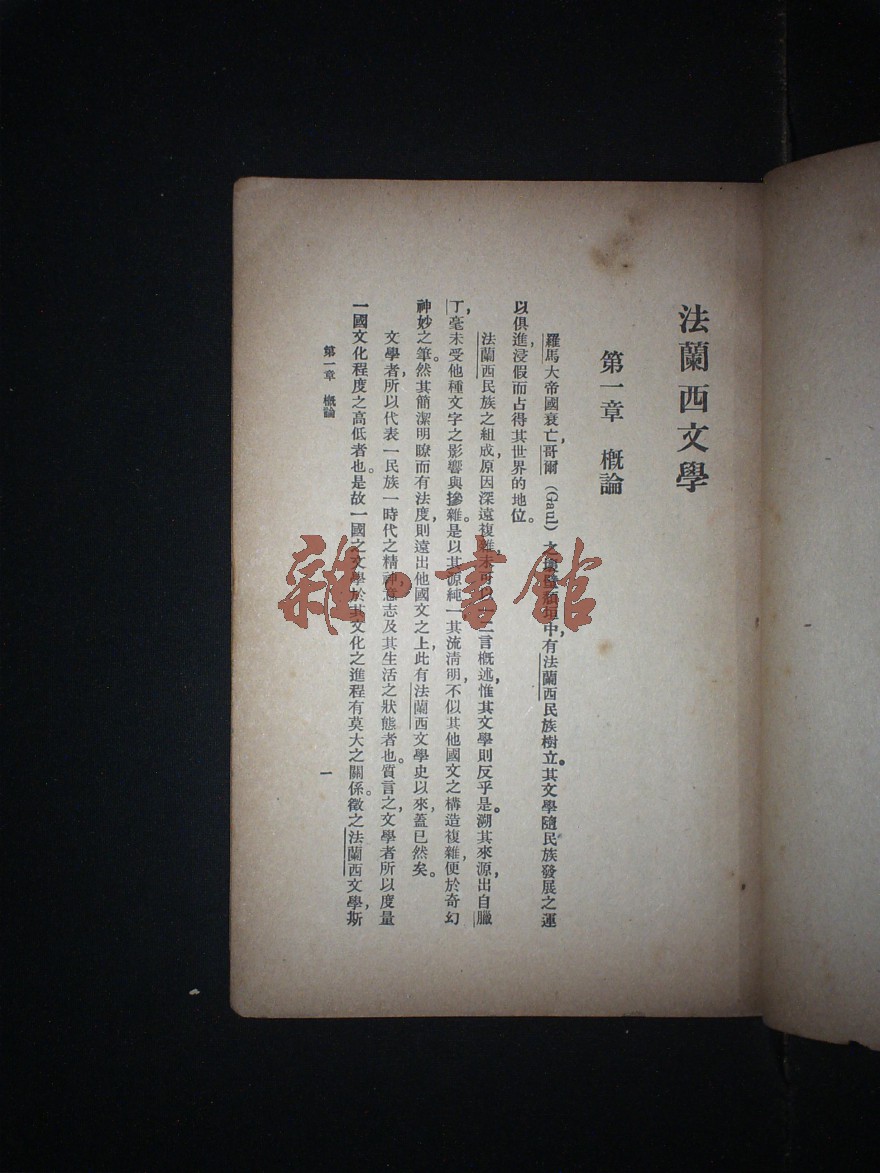 法蘭西文學
第一章　概論
羅馬大帝國衰亡，哥爾 (Gaul) 之 中，有法蘭西民族樹立。其文學隨民族發展之運
以俱進，浸假而占得其世界的地位。
法蘭西民族之組成，原因深遠複雜，未可以一二言概述，惟其文學則反乎是。溯其來源，出自臘
丁，毫未受他種文字之影響與摻雜。是以其源純一，其流清明，不似其他國文之構造複雜，便於奇幻
神妙之筆。然其簡潔明瞭而有法度，則遠出他國文之上，此有法蘭西文學史以來，蓋已然矣。
文學者，所以代表一民族一時代之精神，意志及其生活之狀態者也。質言之，文學者所以度量
一國文化程度之高低者也。是故一國之文學於其文化之進程有莫大之關係。徵之法蘭西文學，斯
第一章　概論
一
雜·書館